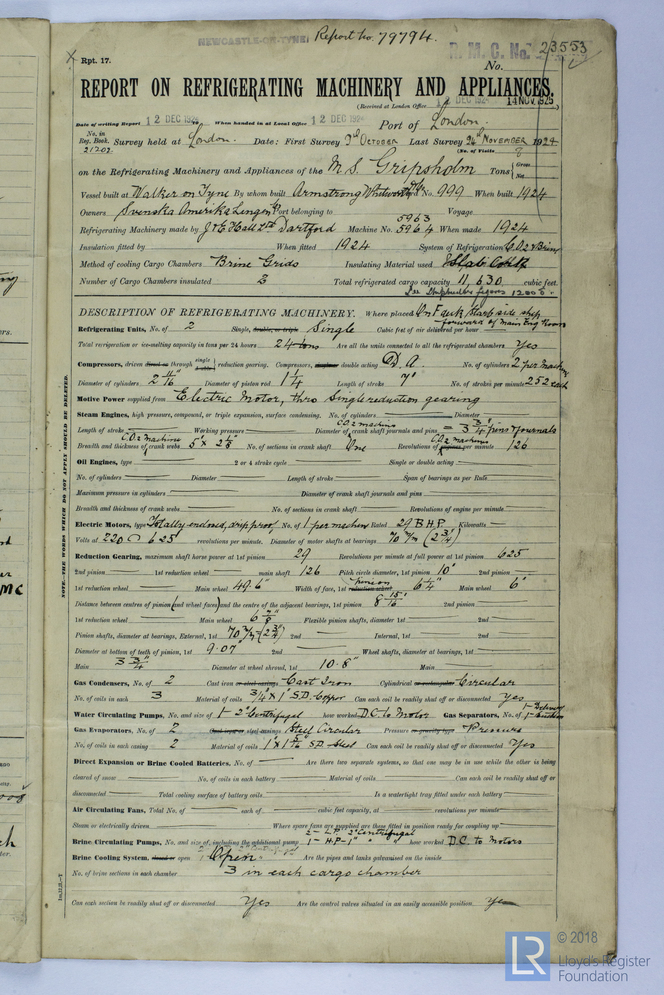 NEWCASTLE-ON-TYNE Report No. 79794.
R.M.C. No. 23553
X Rpt. 17. No.
REPORT ON REFRIGERATING MACHINERY AND APPLIANCES.
(Received at London Office DEC 192 14 NOV 1925
Date of writing Report 12 DEC 192 When handed in at Local Office 12 DEC 192 Port of London.
No. in Reg. Book. Survey held at London. Date: First Survey 9th October Last Survey 24th NOVEMBER 1924
21207. (No. of Visits 8
on the Refrigerating Machinery and Appliances of the M.S. Gripsholm Tons { Gross Net
Vessel built at Walker on Tyne By whom built Armstrong Whitworth Yard No. 999 When built 1924
Owners Svenska Amerika Linjen Port belonging to Voyage
Refrigerating Machinery made by J & E Hall Ltd Dartford Machine No. 5963 5964 When made 1924
Insulation fitted by When fitted 1924 System of Refrigeration CO2 & Brine
Method of cooling Cargo Chambers Brine Grids Insulating Material used Slab Cork
Number of Cargo Chambers insulated 3 Total refrigerated cargo capacity 11,630 cubic feet.
See Shipbuilders figures 12000.
DESCRIPTION OF REFRIGERATING MACHINERY. Where placed On F deck Starb side ship forward of Main Eng Room
Refrigerating Units, No. of 2 Single, double, or triple Single Cubic feet of air delivered per hour
Total refrigerating or ice-melting capacity in tons per 24 hours 24 tons Are all the units connected to all the refrigerated chambers Yes
Compressors, driven direct or through single double reduction gearing. Compressors, single or double acting D.A. No. of cylinders 2 per machine
Diameter of cylinders 2 11/16" Diameter of piston rod 1 1/4 Length of stroke 7" No. of strokes per minute 252 each
Motive Power supplied from Electric Motor, thro Single reduction gearing
Steam Engines, high pressure, compound, or triple expansion, surface condensing. No. of cylinders Diameter
Length of stroke Working pressure Diameter of CO2 machine crank shaft journals and pins = 3 3/4" pins & journals
Breadth and thickness of CO2 machine crank webs 5" x 2 1/8" No. of sections in crank shaft One Revolutions of CO2 machines engines per minute 126
Oil Engines, type 2 or 4 stroke cycle Single or double acting
No. of cylinders Diameter Length of stroke Span of bearings as per Rule
Maximum pressure in cylinders Diameter of crank shaft journals and pins
Breadth and thickness of crank webs No. of sections in crank shaft Revolutions of engine per minute
Electric Motors, type Totally enclosed, drip proof No. of 1 per machine Rated 29 B.H.P. Kilowatts
Volts at 220 625 revolutions per minute. Diameter of motor shafts at bearings 70 m/m (2 3/4")
Reduction Gearing, maximum shaft horse power at 1st pinion 29 Revolutions per minute at full power at 1st pinion 625
2nd pinion 1st reduction wheel main shaft 126 Pitch circle diameter, 1st pinion 10" 2nd pinion
1st reduction wheel Main wheel 49.6" Width of face, 1st reduction wheel pinion 6 1/4" Main wheel 6"
Distance between centres of pinion (and wheel faces) and the centre of the adjacent bearings, 1st pinion 8 15/16" 2nd pinion
1st reduction wheel Main wheel 6 7/8" Flexible pinion shafts, diameter 1st 2nd
Pinion shafts, diameter at bearings, External, 1st 70 m/m (2 3/4") 2nd Internal, 1st 2nd
Diameter at bottom of teeth of pinion, 1st 9.07" 2nd Wheel shafts, diameter at bearings, 1st
Main 3 3/4" Diameter at wheel shroud, 1st 10.8" Main
Gas Condensers, No. of 2 Cast iron or steel casings Cast Iron Cylindrical or rectangular Circular
No. of coils in each 3 Material of coils 3/4" x 1" S.D. Copper Can each coil be readily shut off or disconnected Yes
Water Circulating Pumps, No. and size of 1 - 3" Centrifugal how worked D.C. to Motor Gas Separators, No. of 1 - Delivery 1 - Suction
Gas Evaporators, No. of 2 Cast iron or steel casings Steel Circular Pressure or gravity type Pressure
No. of coils in each casing 2 Material of coils S.D. Steel Can each coil be readily shut off or disconnected Yes
Direct Expansion or Brine Cooled Batteries. No. of Are there two separate systems, so that one may be in use while the other is being
cleared of snow No. of coils in each battery Material of coils Can each coil be readily shut off or
disconnected Total cooling surface of battery coils Is a watertight tray fitted under each battery
Air Circulating Fans, Total No. of each of cubic feet capacity, at revolutions per minute
Steam or electrically driven Where spare fans are supplied are these fitted in position ready for coupling up
Brine Circulating Pumps, No. and size of, including the additional pump 2 - L.P. 2" Centrifugal 1 - H.P - 1" " " how worked D.C. to Motors
Brine Cooling System, closed or open Open Are the pipes and tanks galvanised on the inside
No. of brine sections in each chamber 3 in each cargo chamber
Can each section be readily shut off or disconnected Yes Are the control valves situated in an easily accessible position Yes
NOTE.—THE WORDS WHICH DO NOT APPLY SHOULD BE DELETED.
LR © 2018
Lloyd's Register
Foundation